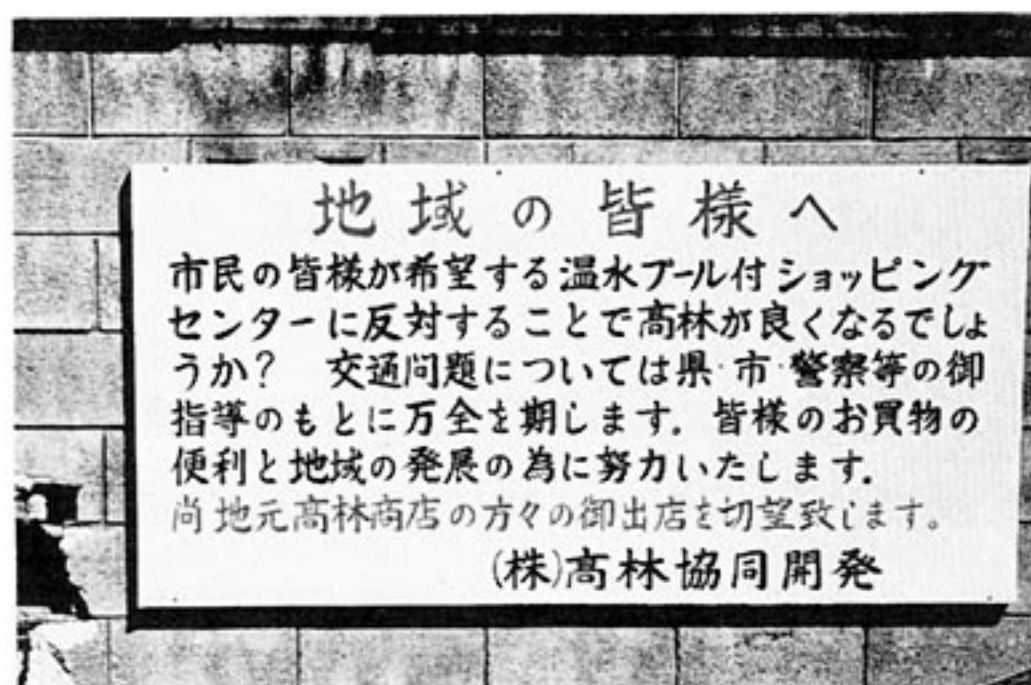 地域の皆様へ
市民の皆様が希望する温水プール付ショッピング
センターに反対することで高林が良くなるでしょ
うか？　交通問題については県・市・警察等の御
指導のもとに万全を期します。皆様のお買物の
便利と地域の発展の為に努力いたします。
尚地元高林商店の方々の御出店を切望致します。
(株)高林協同開発